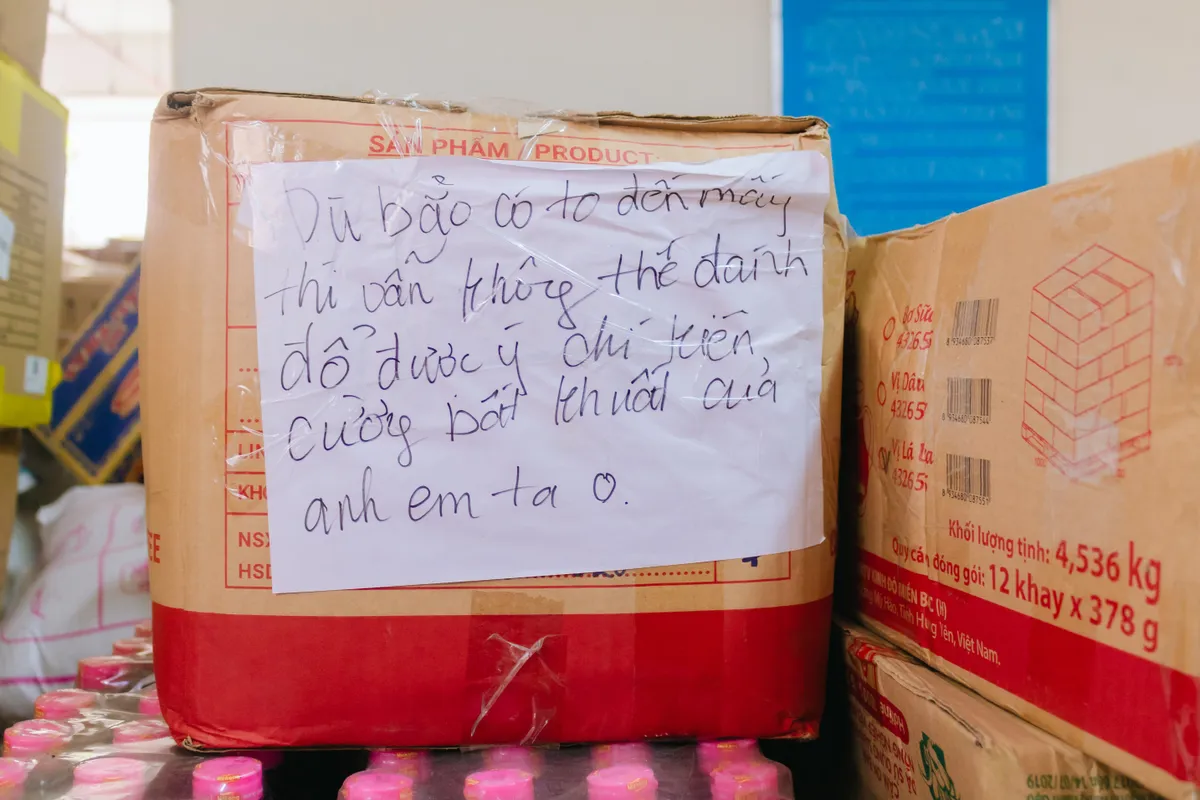 SẢN PHẨM / PRODUCT
Dù bão có to đến mấy
thì vẫn không thể đánh
đổ được ý chí kiên
cường bất khuất của
anh em ta
NSX
HSD
Vị Lá
8 934680 087537
8 934680 087544
8 934680 087551
Khối lượng tịnh: 4,536 kg
Quy cách đóng gói: 12 khay x 378 g
KINH ĐÔ MIỀN BẮC (H)
Mỹ Hào, Tỉnh Hưng Yên, Việt Nam.